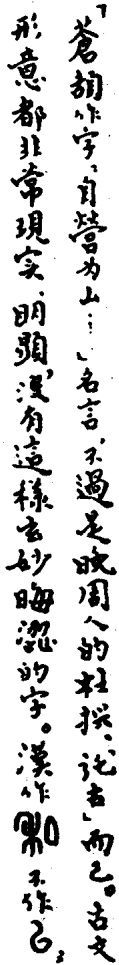 「蒼頡作字，自營为厶…」名言，不過是晚周人的杜撰、「託古」而已。古文
形意都非常現实、明顯，沒有這樣玄妙晦澀的字。漢作 不作